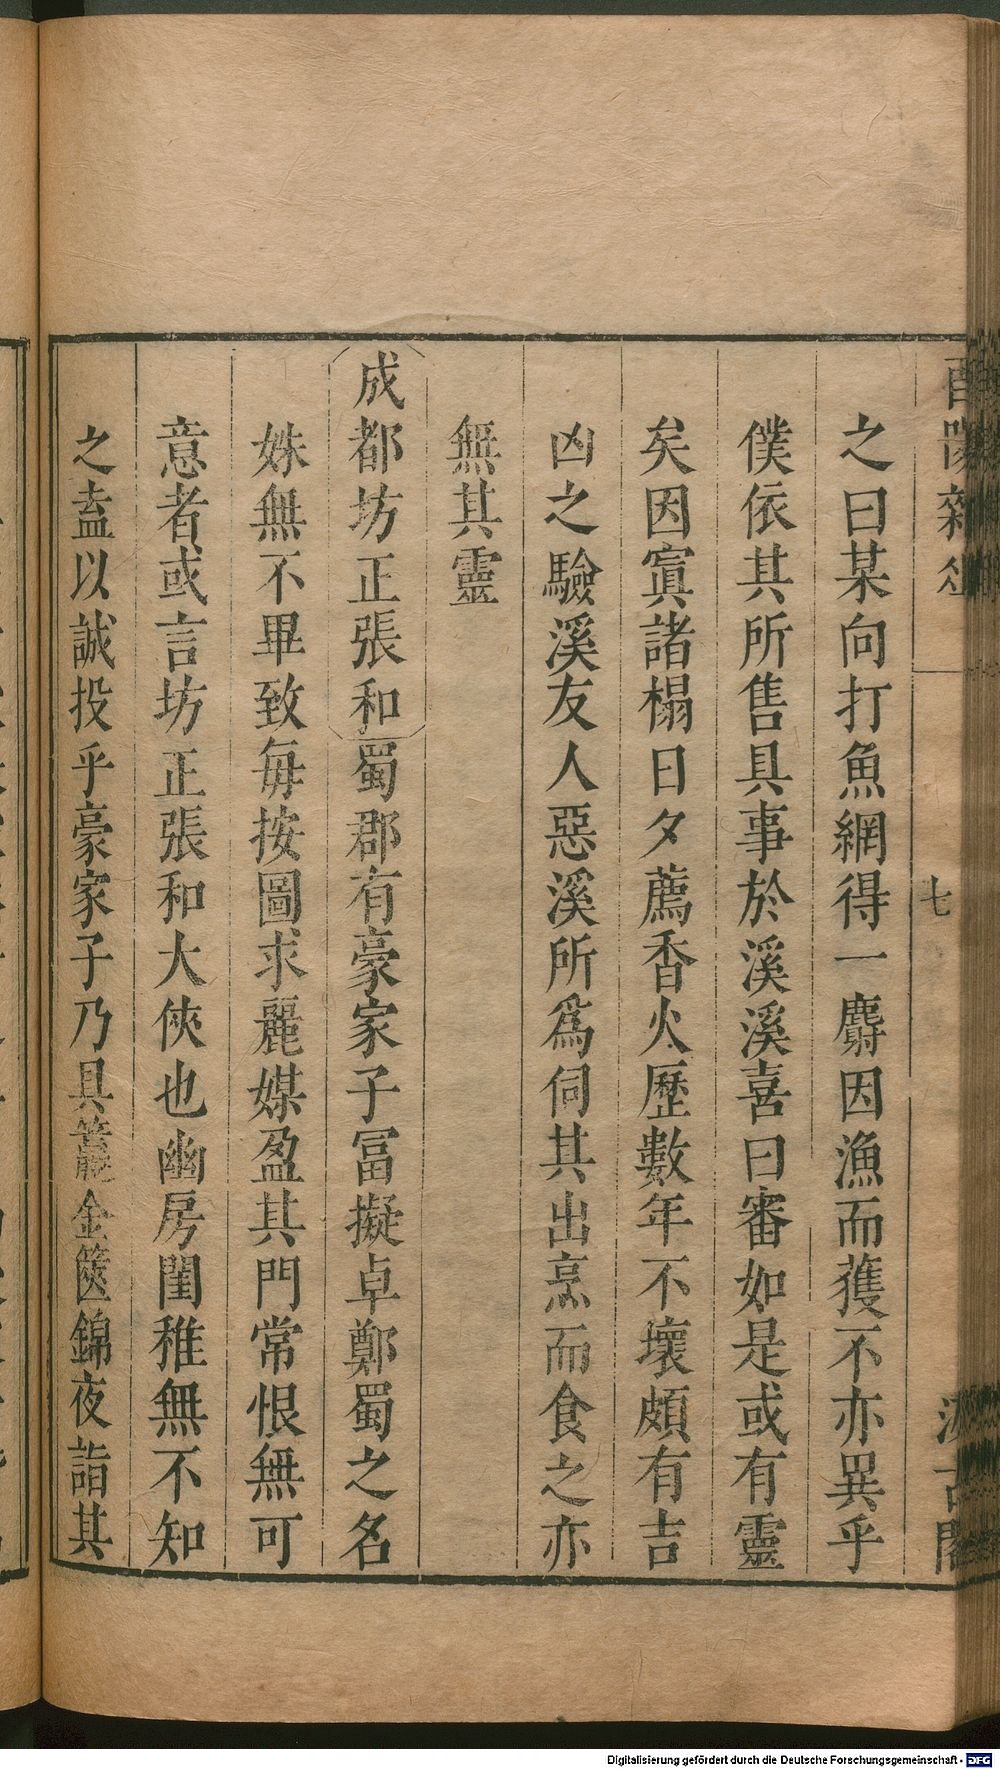 酉陽雜俎
七
汲古閣
之曰某向打魚網得一麝因漁而獲不亦異乎
僕依其所售具事於溪溪喜曰審如是或有靈
矣因寘諸榻日夕薦香火歷數年不壞頗有吉
凶之驗溪友人惡溪所爲伺其出烹而食之亦
無其靈
成都坊正張和蜀郡有豪家子冨擬卓鄭蜀之名
姝無不畢致每按圖求麗媒盈其門常恨無可
意者或言坊正張和大俠也幽房閨稚無不知
之盍以誠投乎豪家子乃具籝金篋錦夜詣其
Digitalisierung gefördert durch die Deutsche Forschungsgemeinschaft - DFG